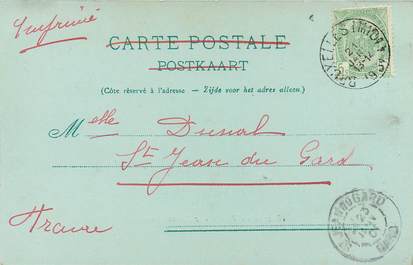 Imprimé
CARTE POSTALE
POSTKAART
(Côte réservé à l'adresse – Zijde voor het adres alleen.)
Melle Dunal
St Jean du Gard
France
BRUXELLES (MIDI)
GARD